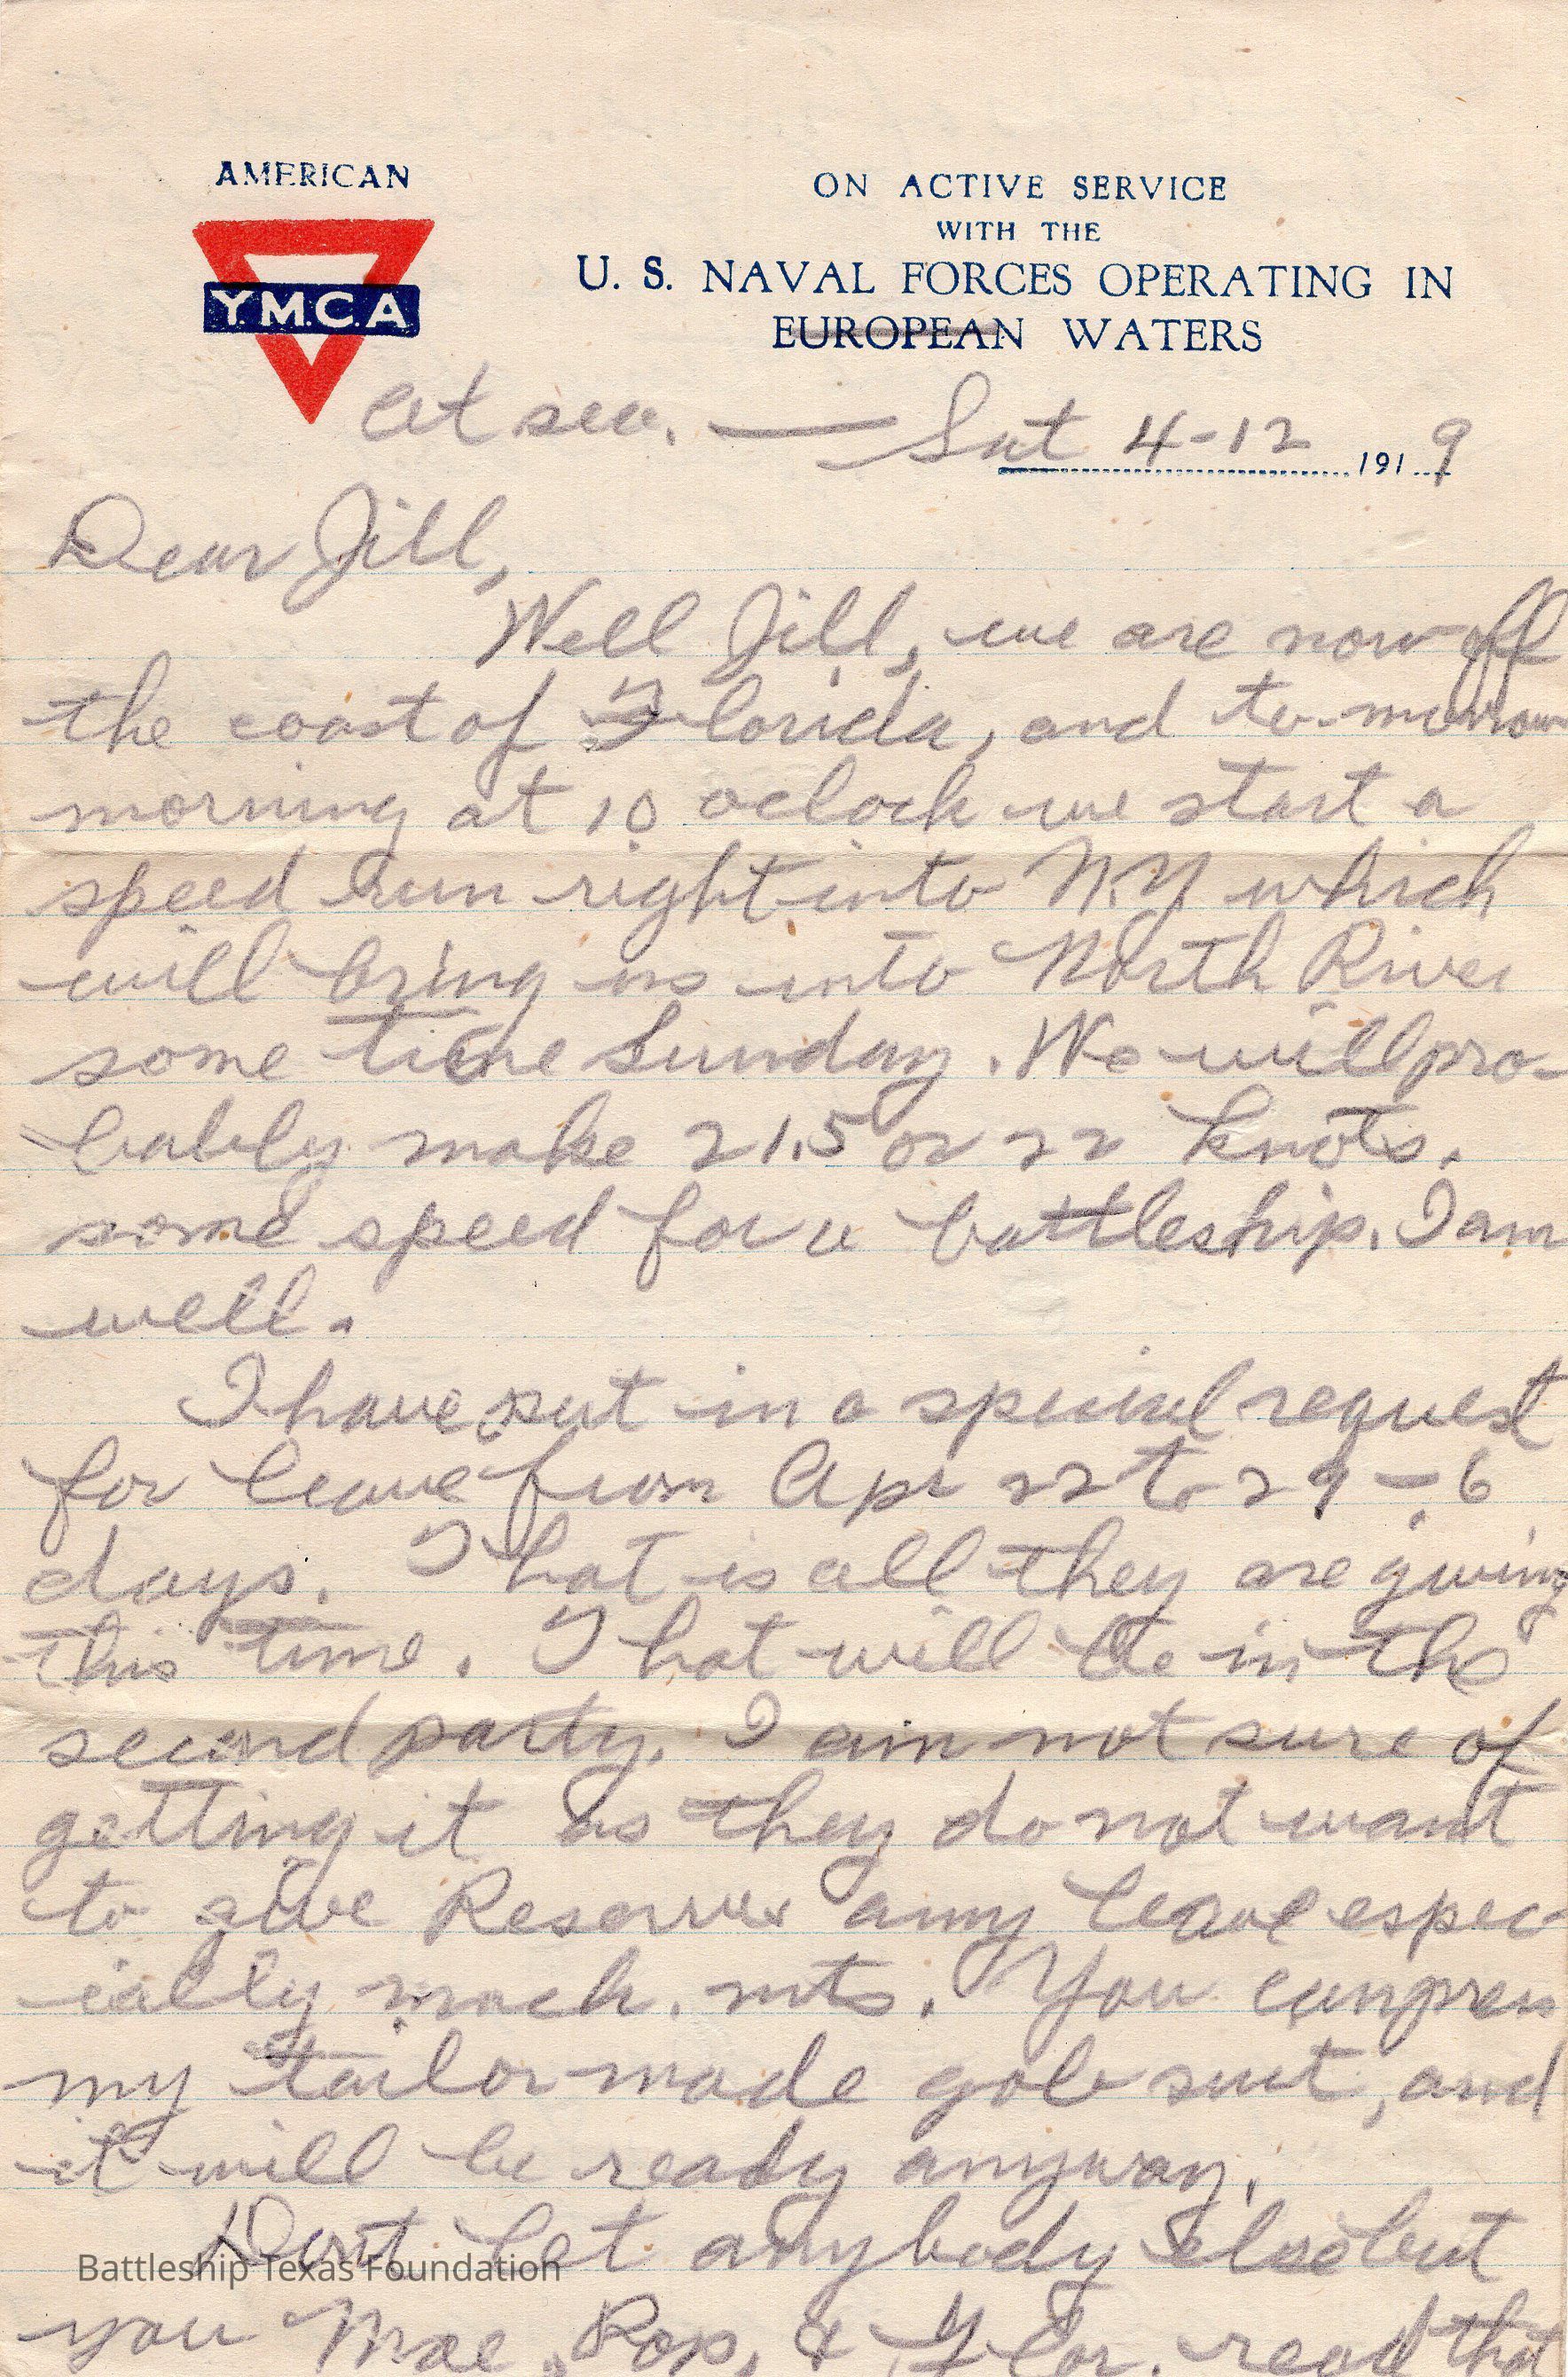 AMERICAN
Y.M.C.A
ON ACTIVE SERVICE
WITH THE
U. S. NAVAL FORCES OPERATING IN
EUROPEAN WATERS
At sea. — Sat 4-12 1919
Dear Jill,
Well Jill, we are now off
the coast of Florida, and to-morrow
morning at 10 oclock we start a
speed run right into N.Y which
will bring us into North River
some time Sunday. We will pro-
bably make 21.5 or 22 knots.
some speed for a battleship. I am
well.
I have put in a special request
for leave from Apr 22 to 29 - 6
days. That is all they are giving
this time. That will be in the
second party. I am not sure of
getting it as they do not want
to give Reserves any leave espec-
ially mach. mts. You can press
my tailor made gob suit, and
it will be ready anyway.
Dont let anybody else but
you Mae, Pop, & Flor. read that
Battleship Texas Foundation